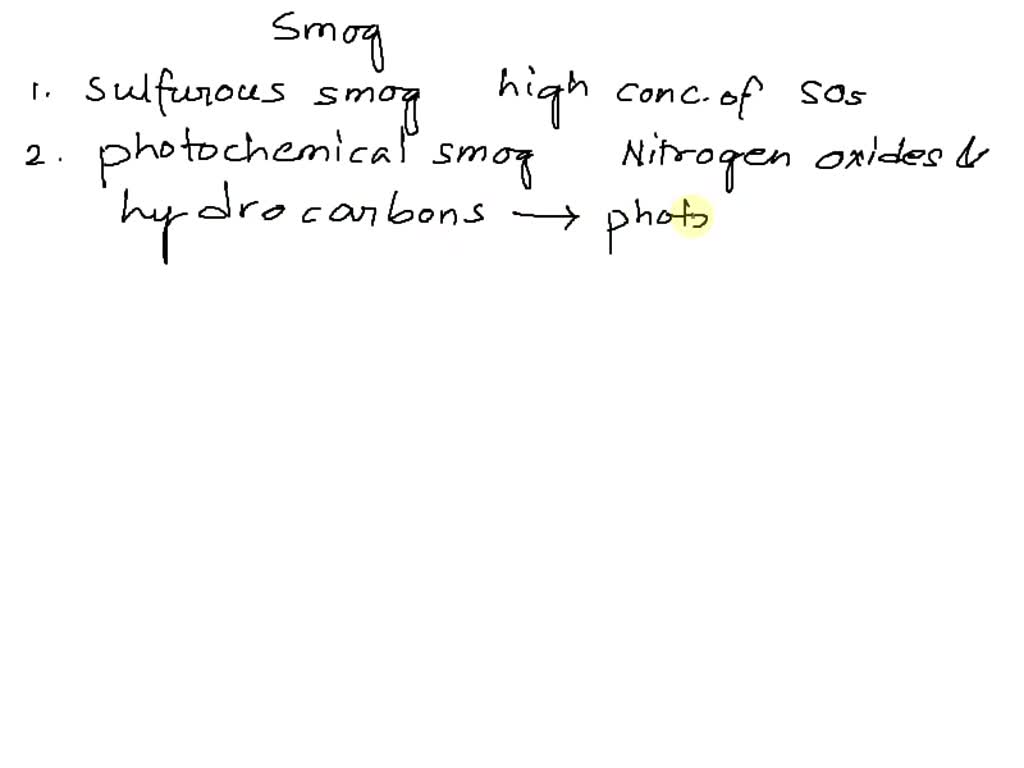 Smog
1. sulfurous smog high conc. of SOs
2. photochemical smog Nitrogen oxides &
hydrocarbons → photo